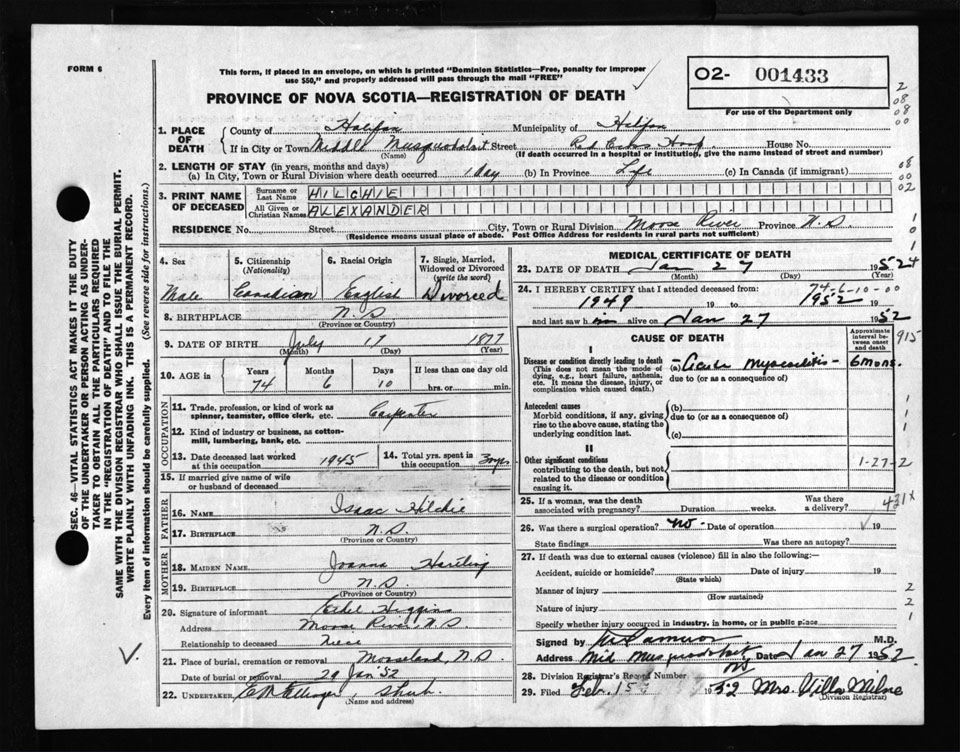 FORM 6
This form, if placed in an envelope, on which is printed "Dominion Statistics—Free, penalty for improper
use $50," and properly addressed will pass through the mail "FREE"
O2- 001433
PROVINCE OF NOVA SCOTIA—REGISTRATION OF DEATH
For use of the Department only
1. PLACE OF DEATH
County of Halifax Municipality of Halifax
If in City or Town Middle Musquodoboit Street Red Cross Hosp. House No.
(Name) (If death occurred in a hospital or institution, give the name instead of street and number)
2. LENGTH OF STAY (in years, months and days)
(a) In City, Town or Rural Division where death occurred 1 day (b) In Province Life (c) In Canada (if immigrant)
3. PRINT NAME OF DECEASED
Surname or Last Name HILCHIE
All Given or Christian Names ALEXANDER
RESIDENCE No. Street City, Town or Rural Division Moose River Province N.S.
(Residence means usual place of abode. Post Office Address for residents in rural parts not sufficient)
4. Sex
Male
5. Citizenship
(Nationality)
Canadian
6. Racial Origin
English
7. Single, Married,
Widowed or Divorced
(write the word)
Divorced
8. BIRTHPLACE N.S.
(Province or Country)
9. DATE OF BIRTH July 17 1877
(Month) (Day) (Year)
10. AGE in Years Months Days If less than one day old
74 6 10 hrs. or min.
OCCUPATION
11. Trade, profession, or kind of work as
spinner, teamster, office clerk, etc. Carpenter
12. Kind of industry or business, as cotton-
mill, lumbering, bank, etc.
13. Date deceased last worked
at this occupation 1945
14. Total yrs. spent in
this occupation
15. If married give name of wife
or husband of deceased
FATHER
16. NAME Isaac Hilchie
17. BIRTHPLACE N.S.
(Province or Country)
MOTHER
18. MAIDEN NAME Joanna Hartling
19. BIRTHPLACE N.S.
(Province or Country)
20. Signature of informant Ethel Higgins
Address Moose River, N.S.
Relationship to deceased Niece
21. Place of burial, cremation or removal Mooseland, N.S.
Date of burial or removal 29 Jan '52
22. UNDERTAKER
MEDICAL CERTIFICATE OF DEATH
23. DATE OF DEATH Jan 27 1952
(Month) (Day)
74-6-10-00
24. I HEREBY CERTIFY that I attended deceased from:
1949 19 to 1952 19
and last saw him alive on Jan 27 1952
CAUSE OF DEATH
Approximate
interval be-
tween onset
and death
915
I
Disease or condition directly leading to death
(This does not mean the mode of
dying, e.g., heart failure, asthenia,
etc. It means the disease, injury, or
complication which caused death.)
(a) Acute myocarditis 6 mons.
due to (or as a consequence of)
Antecedent causes
Morbid conditions, if any, giving
rise to the above cause, stating the
underlying condition last.
(b)
due to (or as a consequence of)
(c)
II
Other significant conditions
contributing to the death, but not
related to the disease or condition
causing it.
1-27-2
25. If a woman, was the death
associated with pregnancy? Duration weeks. Was there
a delivery?
431x
26. Was there a surgical operation? no Date of operation 19
State findings Was there an autopsy?
27. If death was due to external causes (violence) fill in also the following:—
Accident, suicide or homicide? Date of injury 19
(State which)
Manner of injury
(How sustained)
Nature of injury
Specify whether injury occurred in industry, in home, or in public place
Signed by M.D.
Address Mid Musquodoboit Date Jan 27 1952
28. Division Registrar's Record Number
29. Filed Feb. 15 1952 Mrs. Villa Milne
(Division Registrar)
SEC. 46—VITAL STATISTICS ACT MAKES IT THE DUTY
OF THE UNDERTAKER OR PERSON ACTING AS UNDER-
TAKER TO OBTAIN ALL THE PARTICULARS REQUIRED
IN THE "REGISTRATION OF DEATH" AND TO FILE THE
SAME WITH THE DIVISION REGISTRAR WHO SHALL ISSUE THE BURIAL PERMIT.
WRITE PLAINLY WITH UNFADING INK. THIS IS A PERMANENT RECORD.
Every item of information should be carefully supplied. (See reverse side for instructions.)